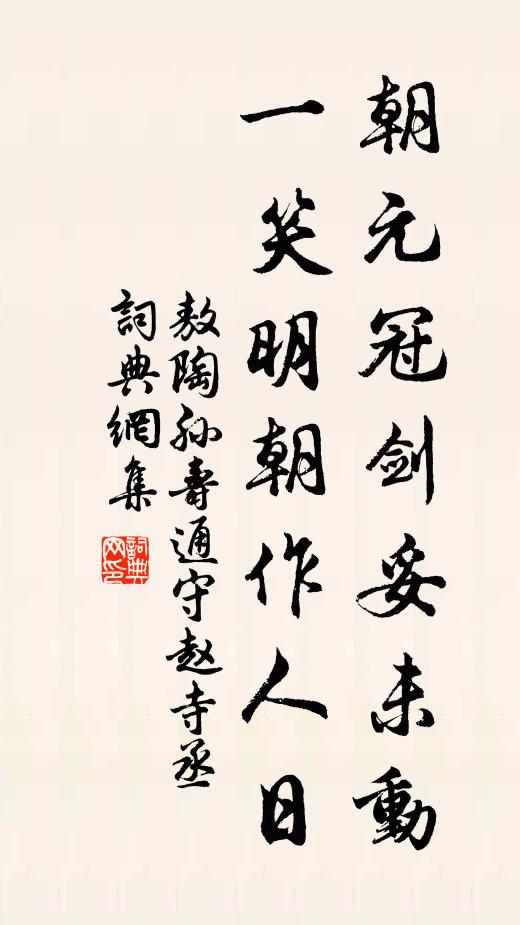 朝元冠剑妥未動
一笑明朝作人日
敖陶孙壽通守赵寺丞
詞典網集
詞典網印